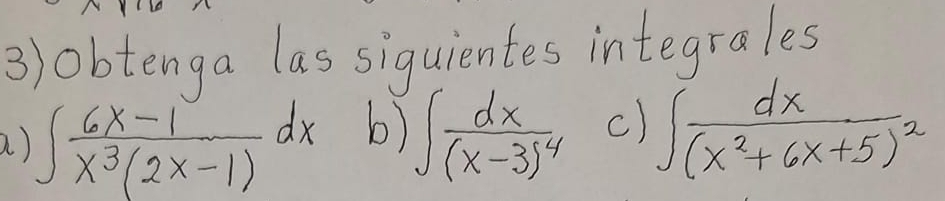 3) Obtenga las siguientes integrales
a) ∫ (6x-1)/(x³(2x-1)) dx b) ∫ dx/(x-3)⁴ c) ∫ dx/(x²+6x+5)²